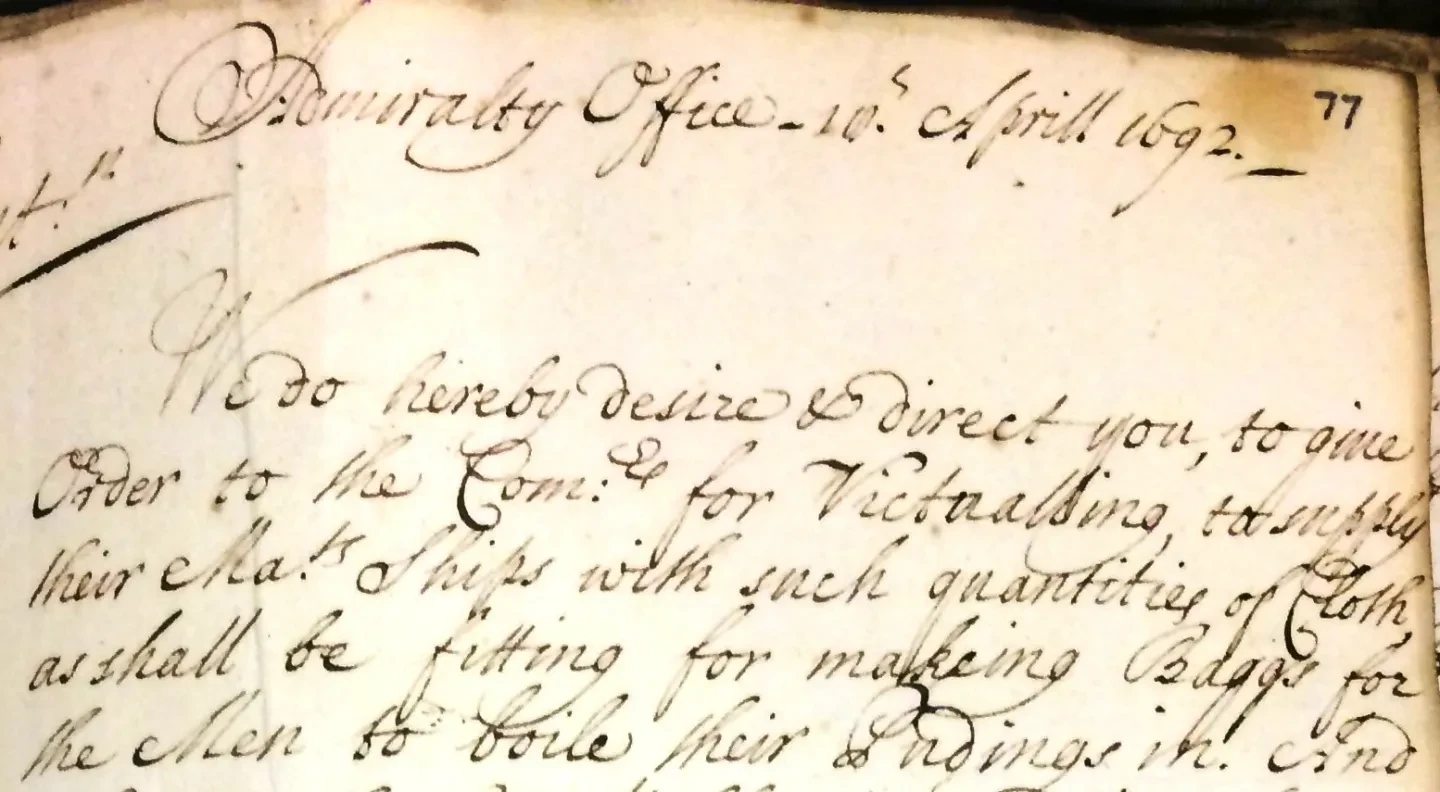 Admiralty Office - 10.th Aprill 1692. _
77
We do hereby desire & direct you, to give
Order to the Com:rs for Victualling, to supply
their Ma.ts Ships with such quantities of Cloth,
as shall be fitting for makeing Baggs for
the Men to boile their Pudings in. And